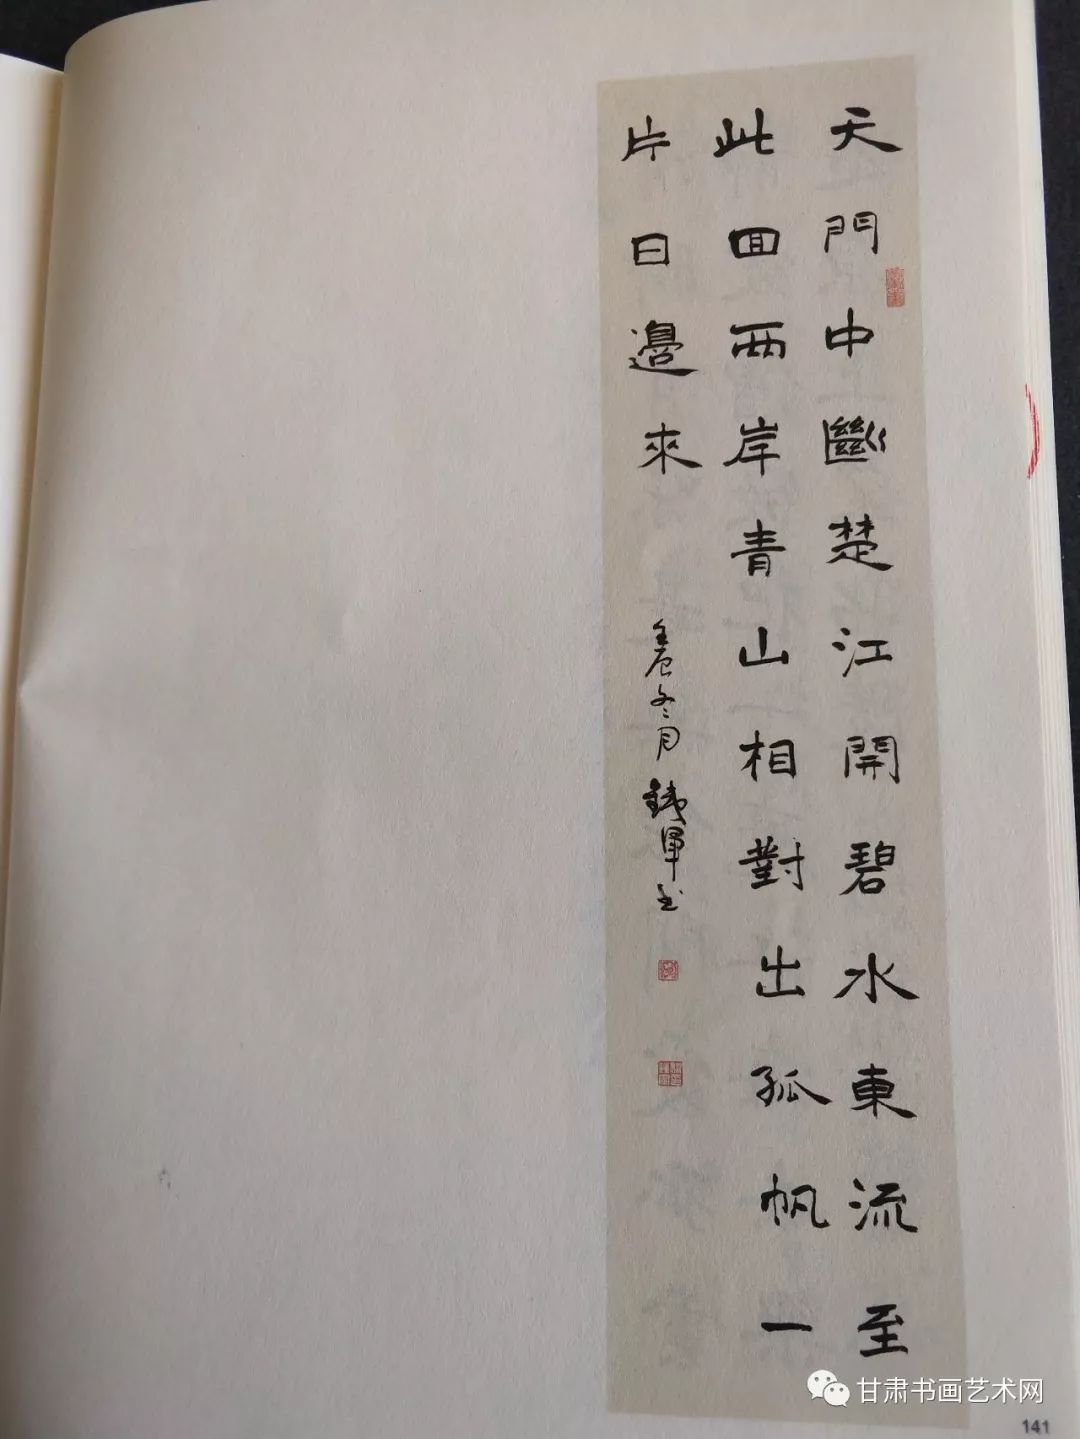 天門中斷楚江開碧水東流至
此回兩岸青山相對出孤帆一
片日邊來
壬辰冬月鐵軍書
甘肃书画艺术网
141